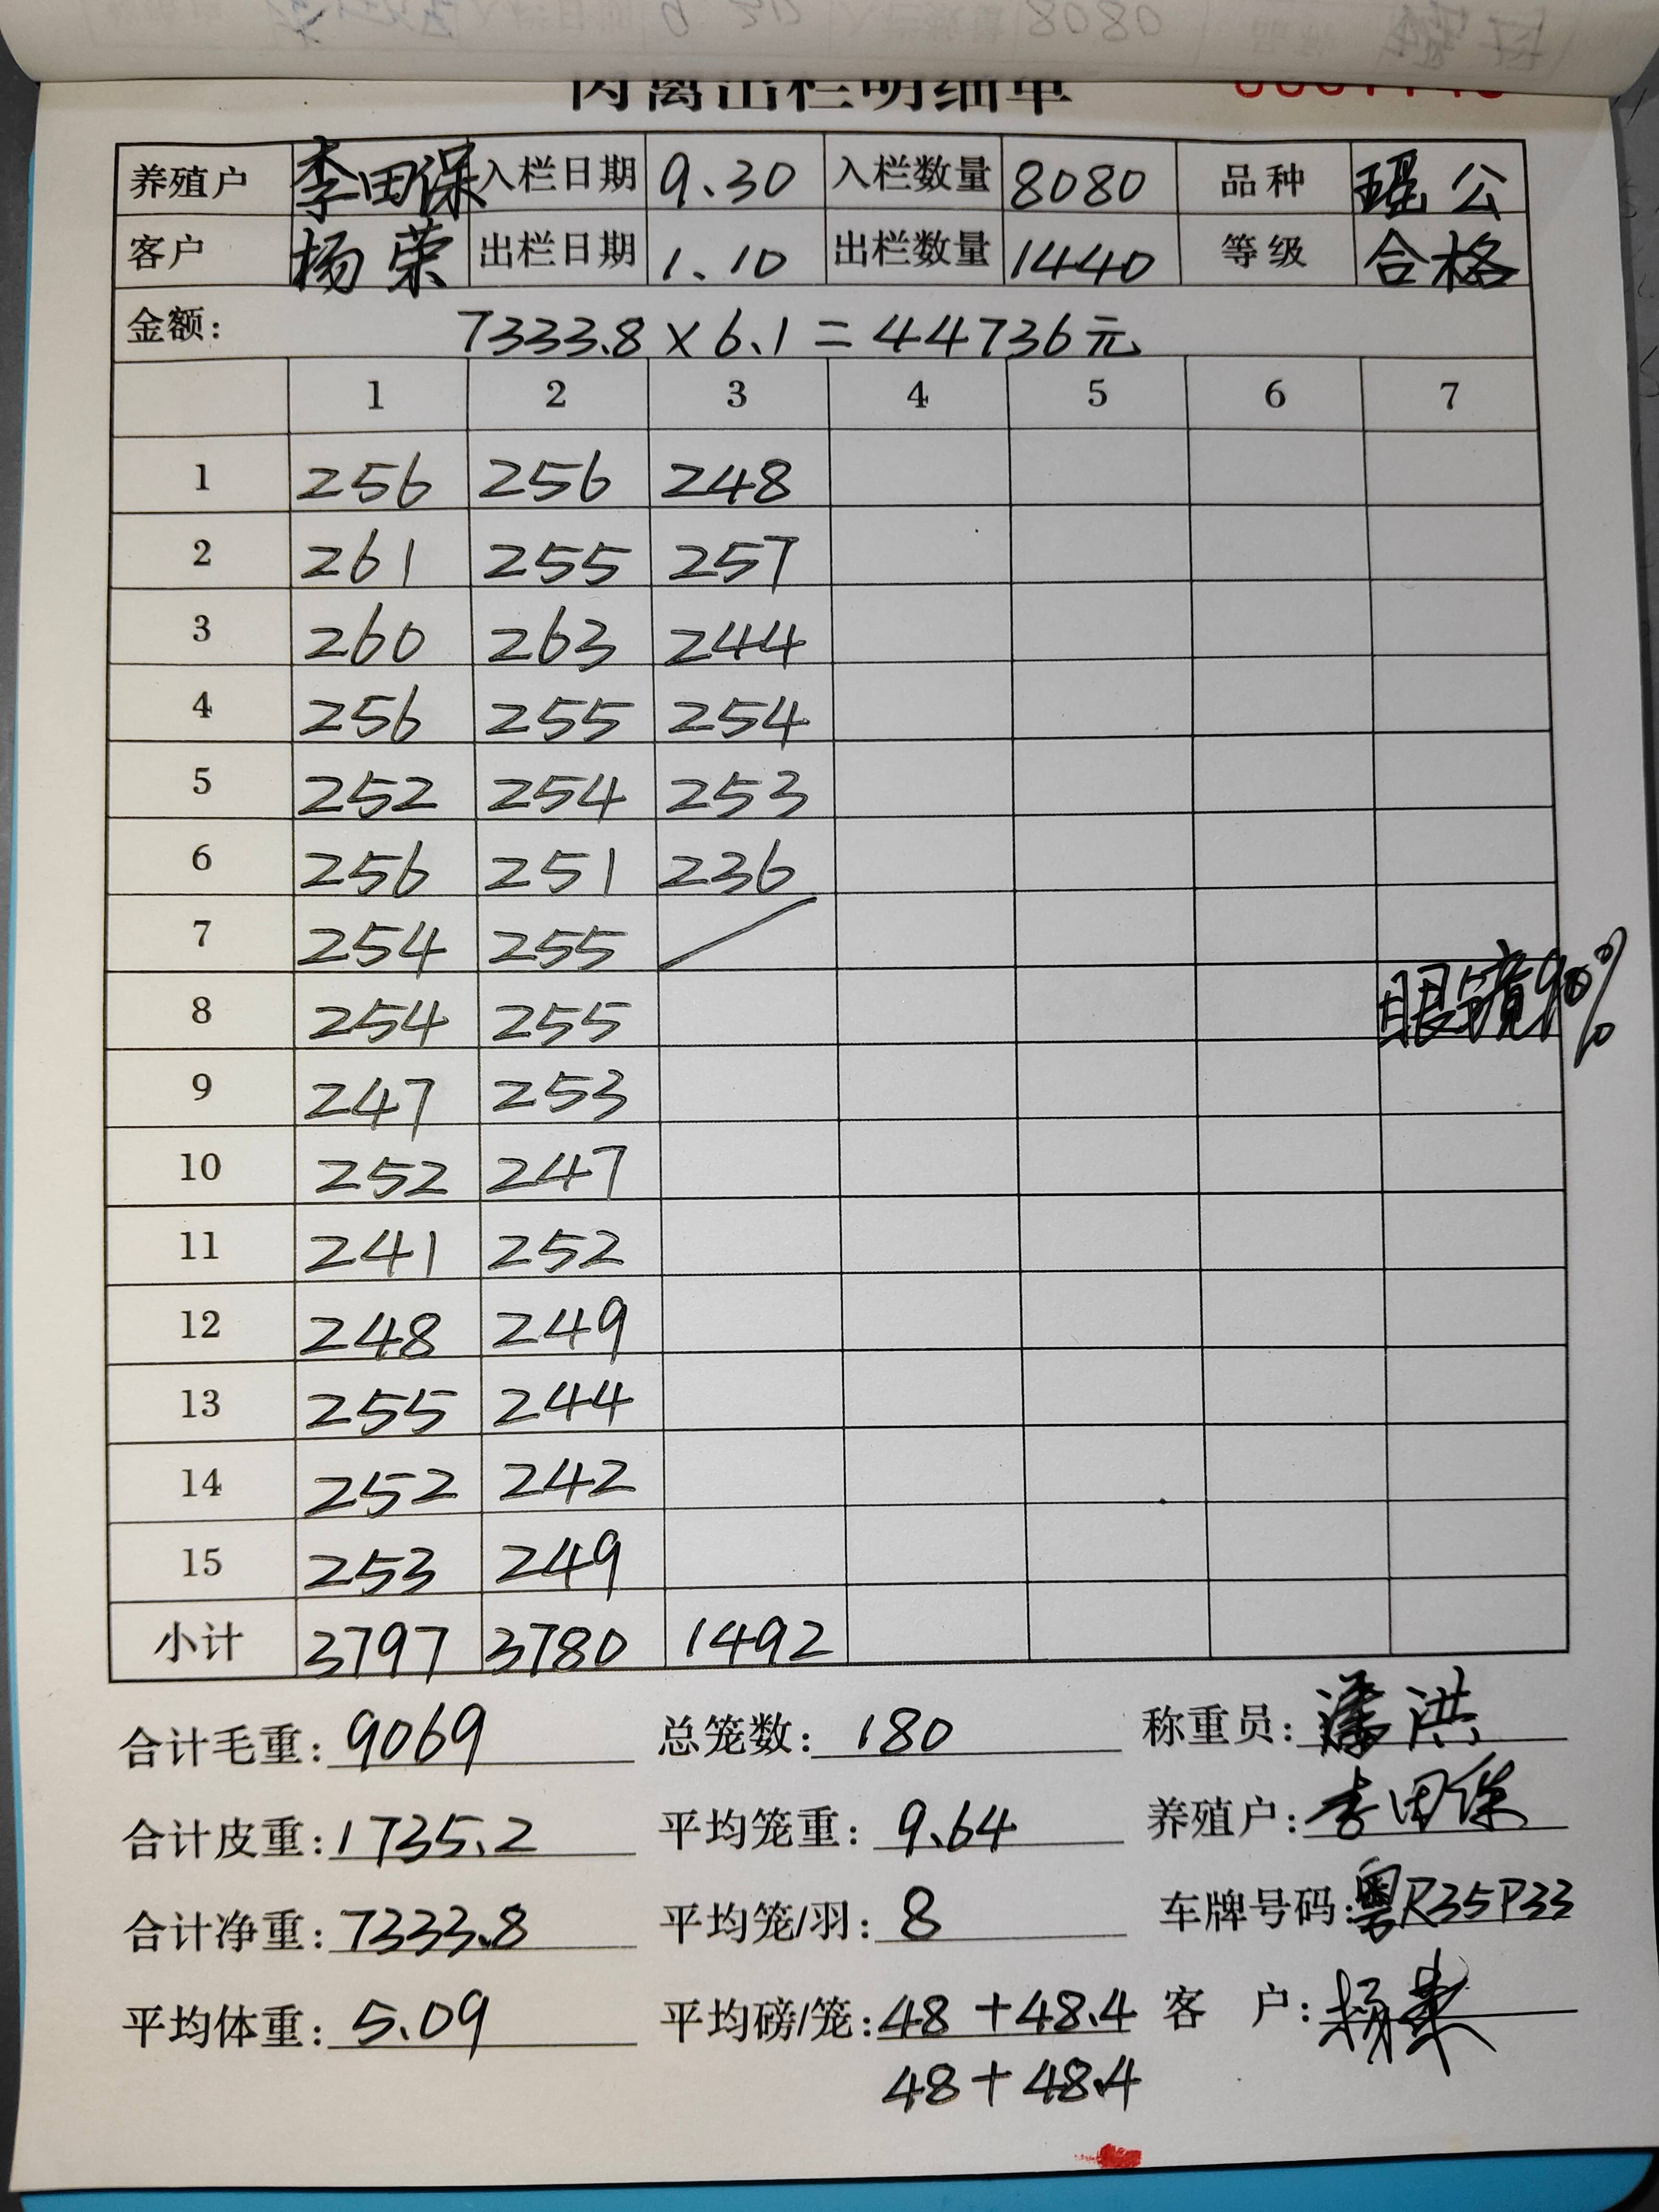 肉禽出栏明细单
养殖户 李田保 入栏日期 9.30 入栏数量 8080 品种 瑶公
客户 杨荣 出栏日期 1.10 出栏数量 1440 等级 合格
金额: 7333.8×6.1=44736元
1 2 3 4 5 6 7
1 256 256 248
2 261 255 257
3 260 263 244
4 256 255 254
5 252 254 253
6 256 251 236
7 254 255
8 254 255 眼镜90%
9 247 253
10 252 247
11 241 252
12 248 249
13 255 244
14 252 242
15 253 249
小计 3797 3780 1492
合计毛重: 9069 总笼数: 180 称重员: 潘洪
合计皮重: 1735.2 平均笼重: 9.64 养殖户: 李田保
合计净重: 7333.8 平均笼/羽: 8 车牌号码: 粤R35P33
平均体重: 5.09 平均磅/笼: 48+48.4 客户: 杨荣
48+48.4